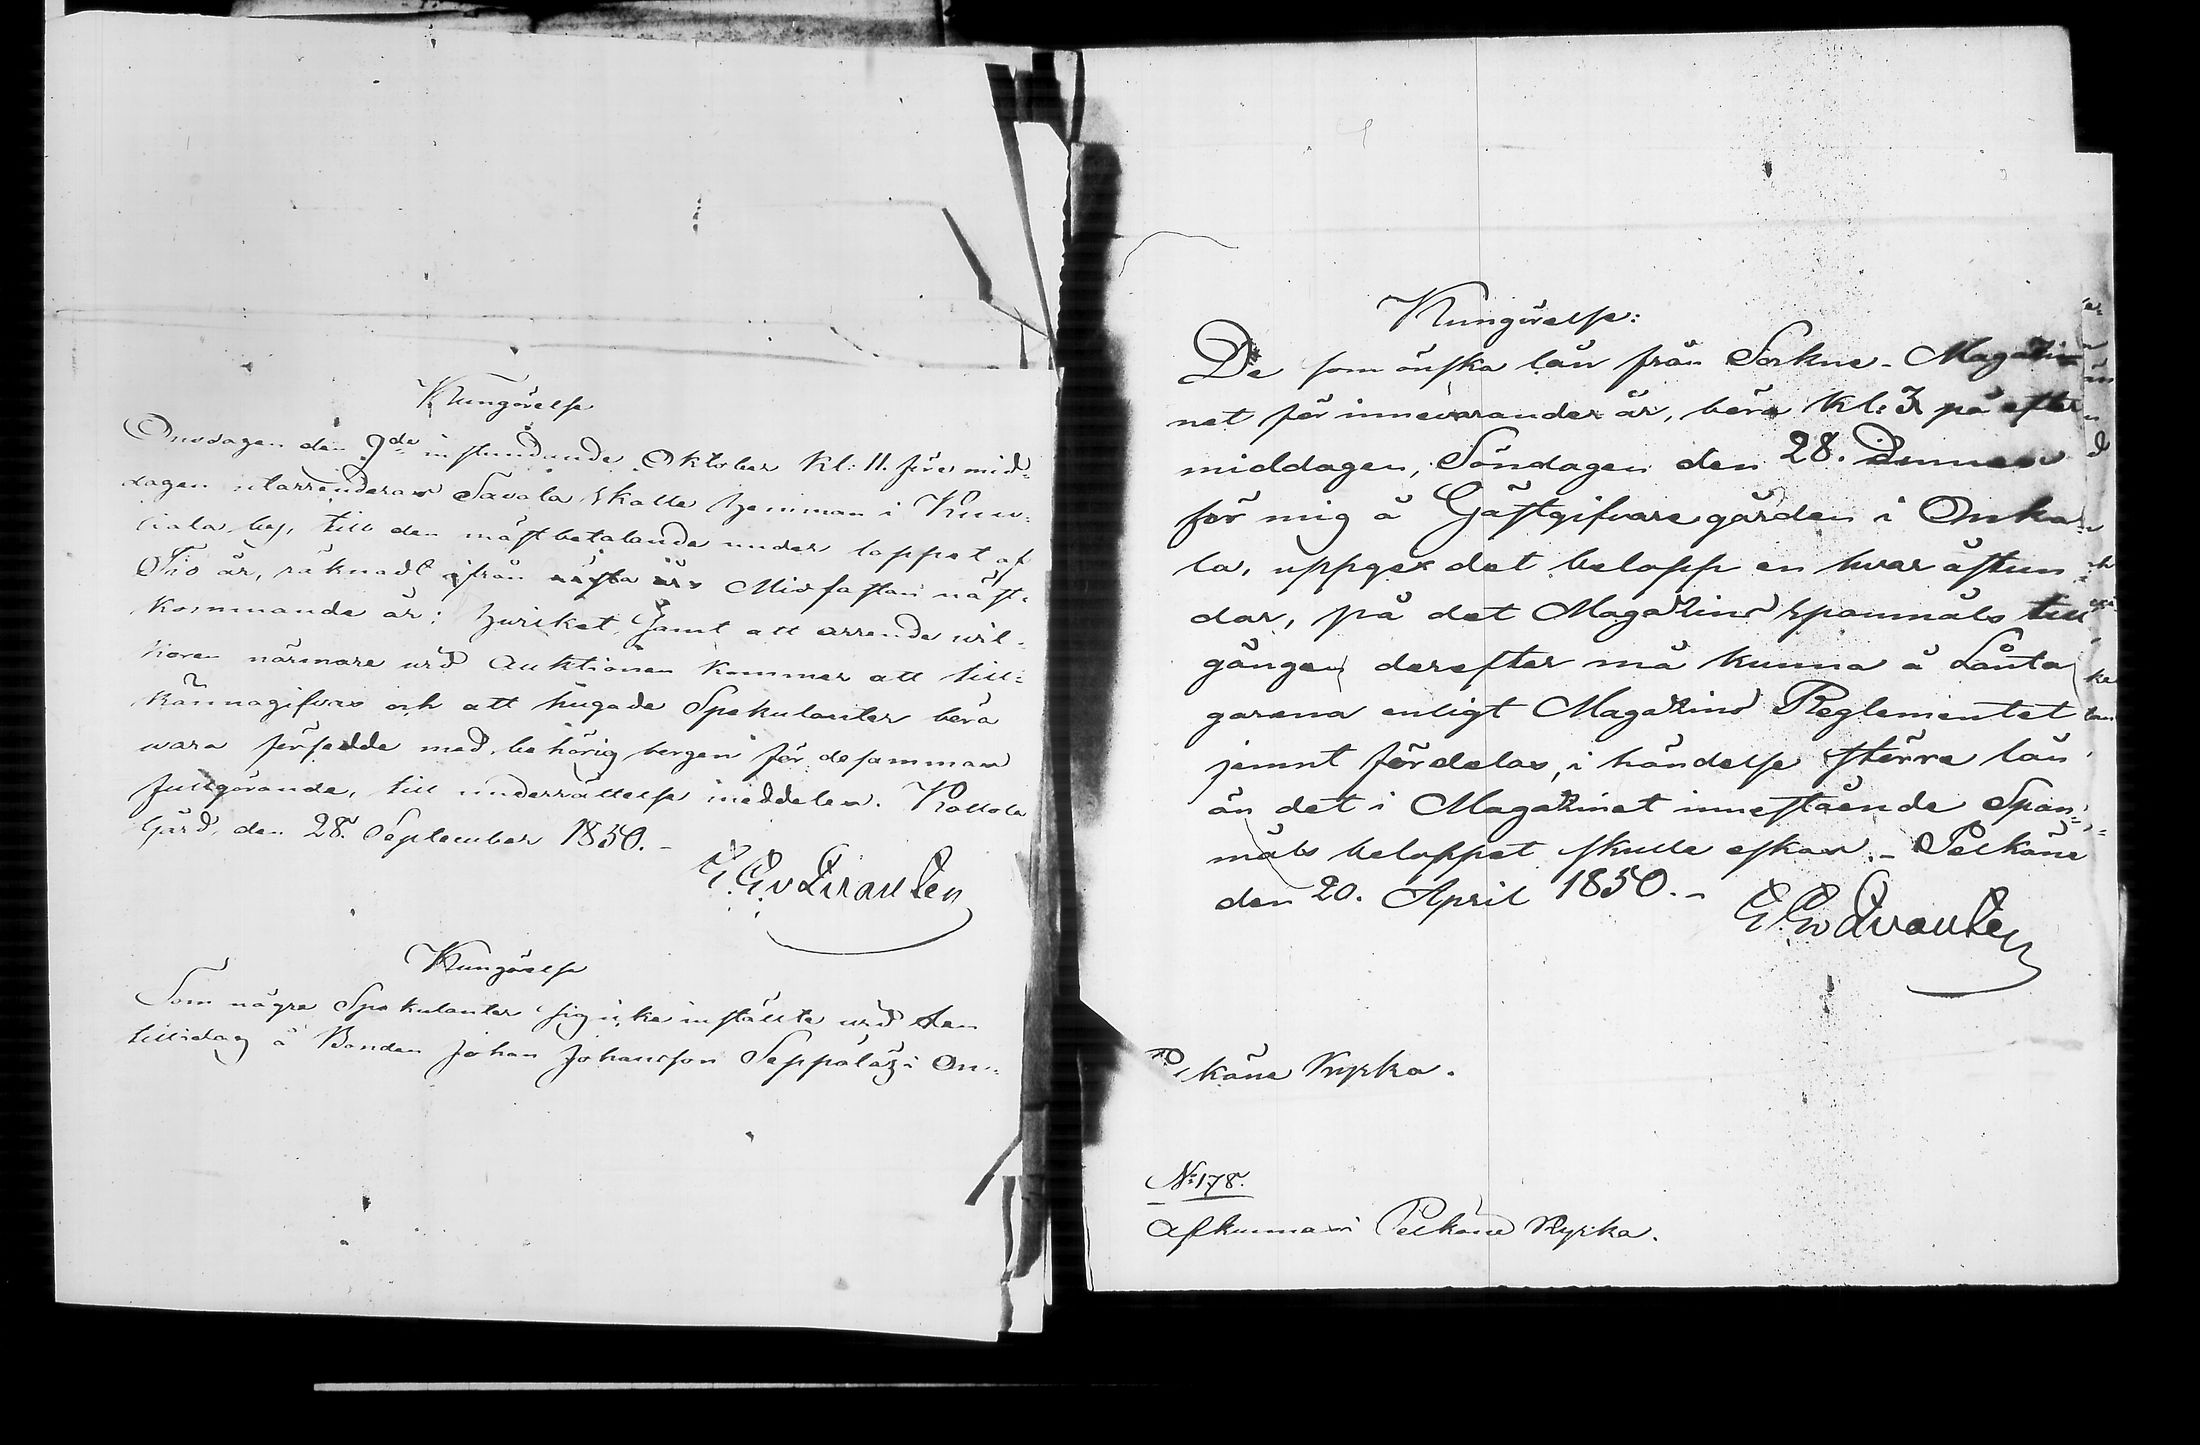 Kungörelse
Onsdagen den 9de instundande Oktober kl: 11. före mid-
dagen utarrenderas Savola skatte hemman i Kuu-
liala by, till den mästbetalande under loppet af
Tio år, räknadt ifrån Midfastan näst-
kommande år; hvilket, jemt att arrende wil-
koren närmare wid Auktionen kommer att till-
kännagifvas och att hugade Spekulanter böra
wara försedde med behörig borgen för desammas
fullgörande, till underrättelse meddelas. Kollola
Gård, den 28. September 1850.-
Kungörelse
Som några Spekulanter sig icke inställte wid den
tillidag å Bonden Johan Johansson Seppälä i On-
Kungörelse:
De som önska lån från Sockne-Magazi-
net för innevarander år, böra kl: 3 på efter
middagen, Söndagen den 28. dennes
för mig å Gästgifvare gården i Onka
la, uppge det belopp en hvar åstun
dar, på det Magazins spanmåls till
gången derefter må kunna å Lånta
garena enligt Magazins Reglementet
jemnt fördelas, i händelse större lån
än det i Magazinet innestående Span-
måls beloppet skulle äskas.- Pelkäne
den 20. April 1850.-
Pelkäne Kyrka.
No 178.
Afkunnas i Pelkäne Kyrka.